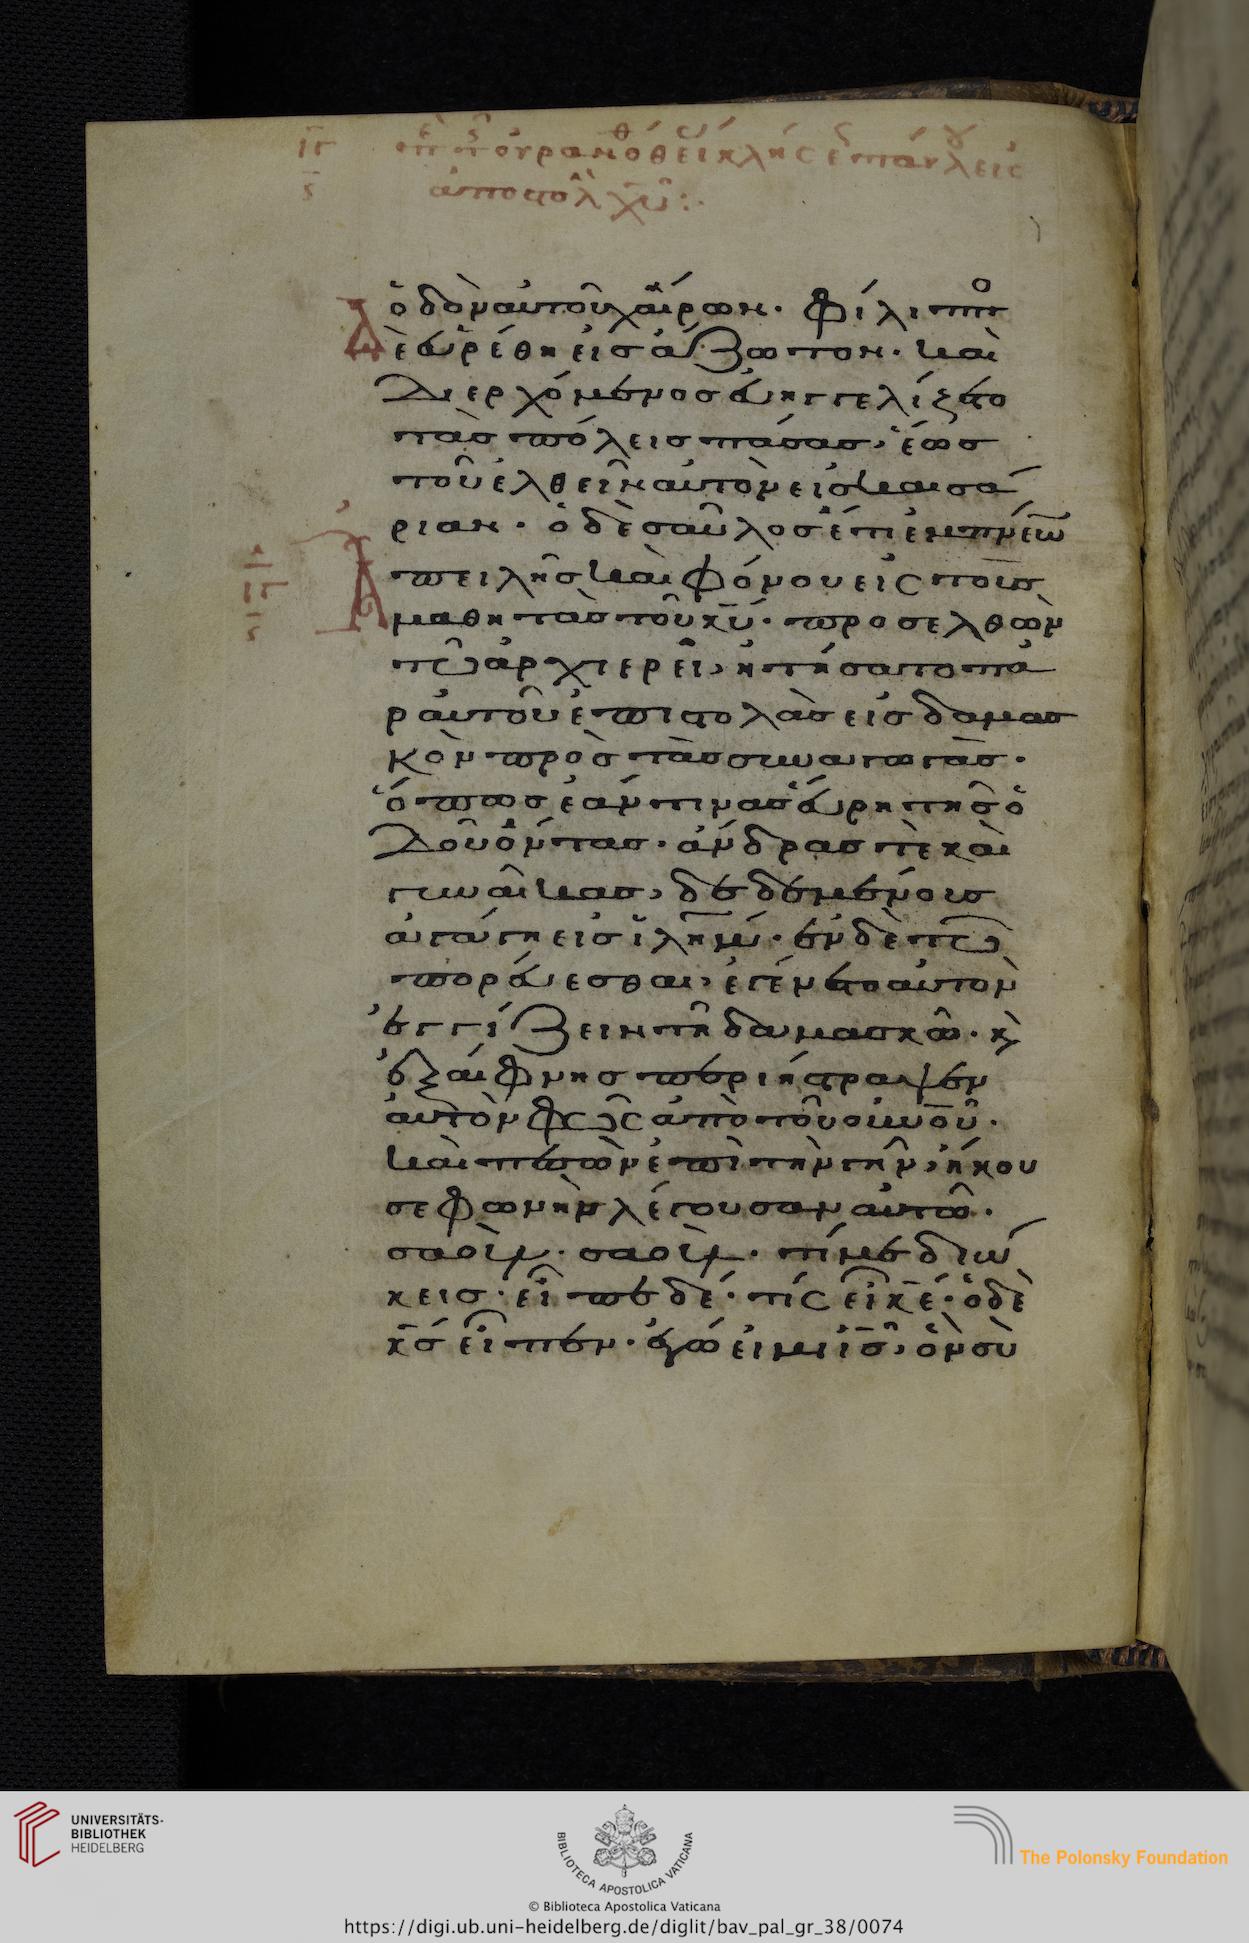 ιγ περὶ τῆς οὐρανόθεν κλήσεως παύλου εἰς
ς ἀποστολὴν χυ:
ὁδὸν αὐτοῦ χαίρων. Φίλιππος
Δὲ εὑρέθη εἰς ἄζωτον. καὶ
διερχόμενος εὐηγγελίζετο
τὰς πόλεις πάσας, ἕως
τοῦ ἐλθεῖν αὐτὸν εἰς καισά
ριαν. ὁ δὲ σαῦλος ἔτι ἐμπνέων
Ἀπειλῆς καὶ φόνου εἰς τοὺς
μαθητὰς τοῦ κυ. προσελθὼν
τῶ ἀρχιερεῖ, ἠτήσατο πα
ρ αὐτοῦ ἐπιστολὰς εἰς δαμασ
κὸν πρὸς τὰς συναγωγάς.
ὅπως ἐάν τινας εὕρη τῆς ὁ
δοῦ ὄντας. ἄνδρας τὲ καὶ
γυναῖκας, δεδεμένους
ἀγάγη εἰς ἱλημ. ἐν δὲ τῶ
πορεύεσθαι, ἐγένετο αὐτὸν
ἐγγίζειν τῆ δαμασκῶ. κὶ
ἐξαίφνης περιήστραψεν
αὐτὸν φῶς ἀπὸ τοῦ οὐνοῦ.
καὶ πεσὼν ἐπὶ τὴν γῆν, ἤκου
σε φωνὴν λέγουσαν αὐτῶ.
σαοὺλ. σαοὺλ. τί με διώ
κεις. εἶπε δέ. τίς εἶ κε. ὁ δὲ
κς εἶπεν. ἐγώ εἰμι ις, ὃν σὺ
UNIVERSITÄTS-
BIBLIOTHEK
HEIDELBERG
BIBLIOTECA APOSTOLICA VATICANA
The Polonsky Foundation
© Biblioteca Apostolica Vaticana
https://digi.ub.uni-heidelberg.de/diglit/bav_pal_gr_38/0074